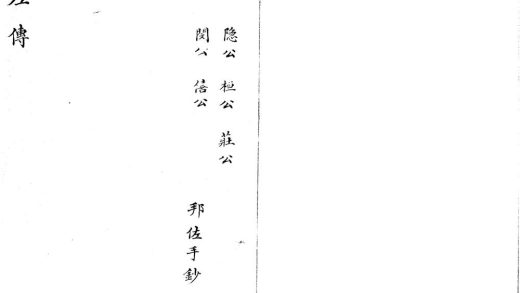 隐公 桓公 莊公
閔公 僖公
邦佐手鈔
左傳